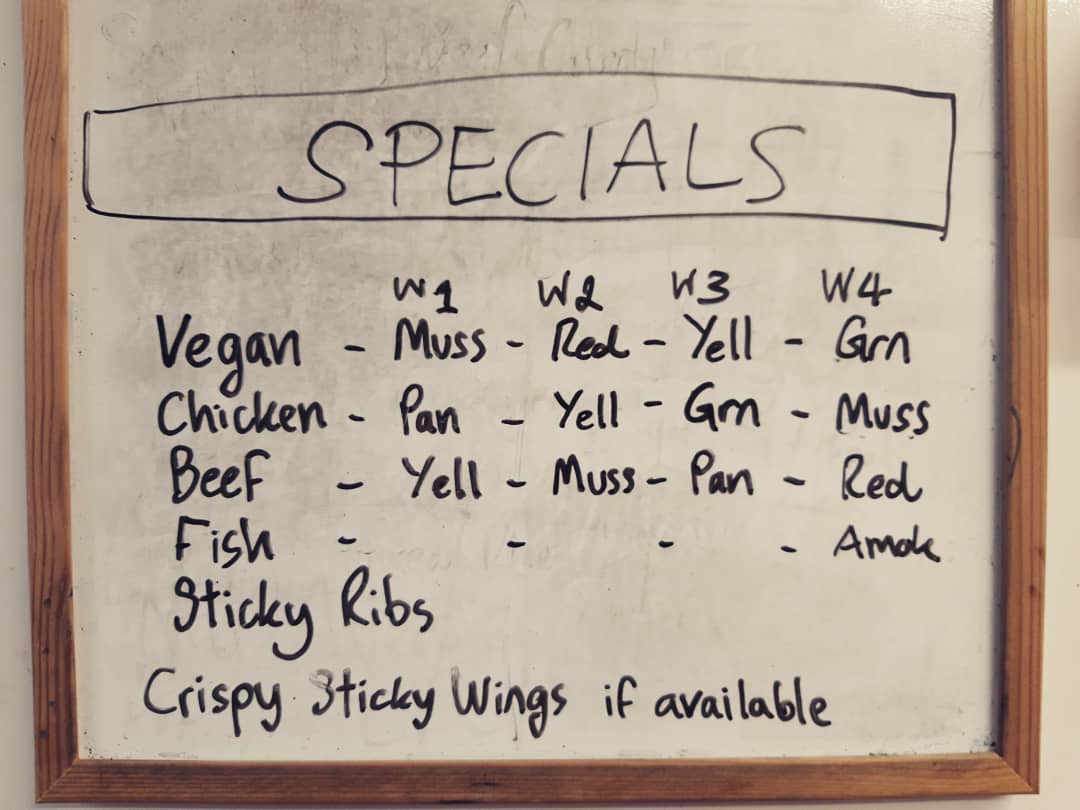 SPECIALS
W1 W2 W3 W4
Vegan - Muss - Red - Yell - Grn
Chicken - Pan - Yell - Grn - Muss
Beef - Yell - Muss - Pan - Red
Fish - - - - Amok
Sticky Ribs
Crispy Sticky Wings if available